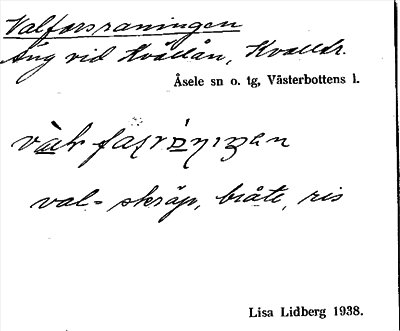 Valforsraningen
Äng vid Kvällån, Kvälltr.
Åsele sn o. tg, Västerbottens l.
val= skräp, bråte, ris
Lisa Lidberg 1938.